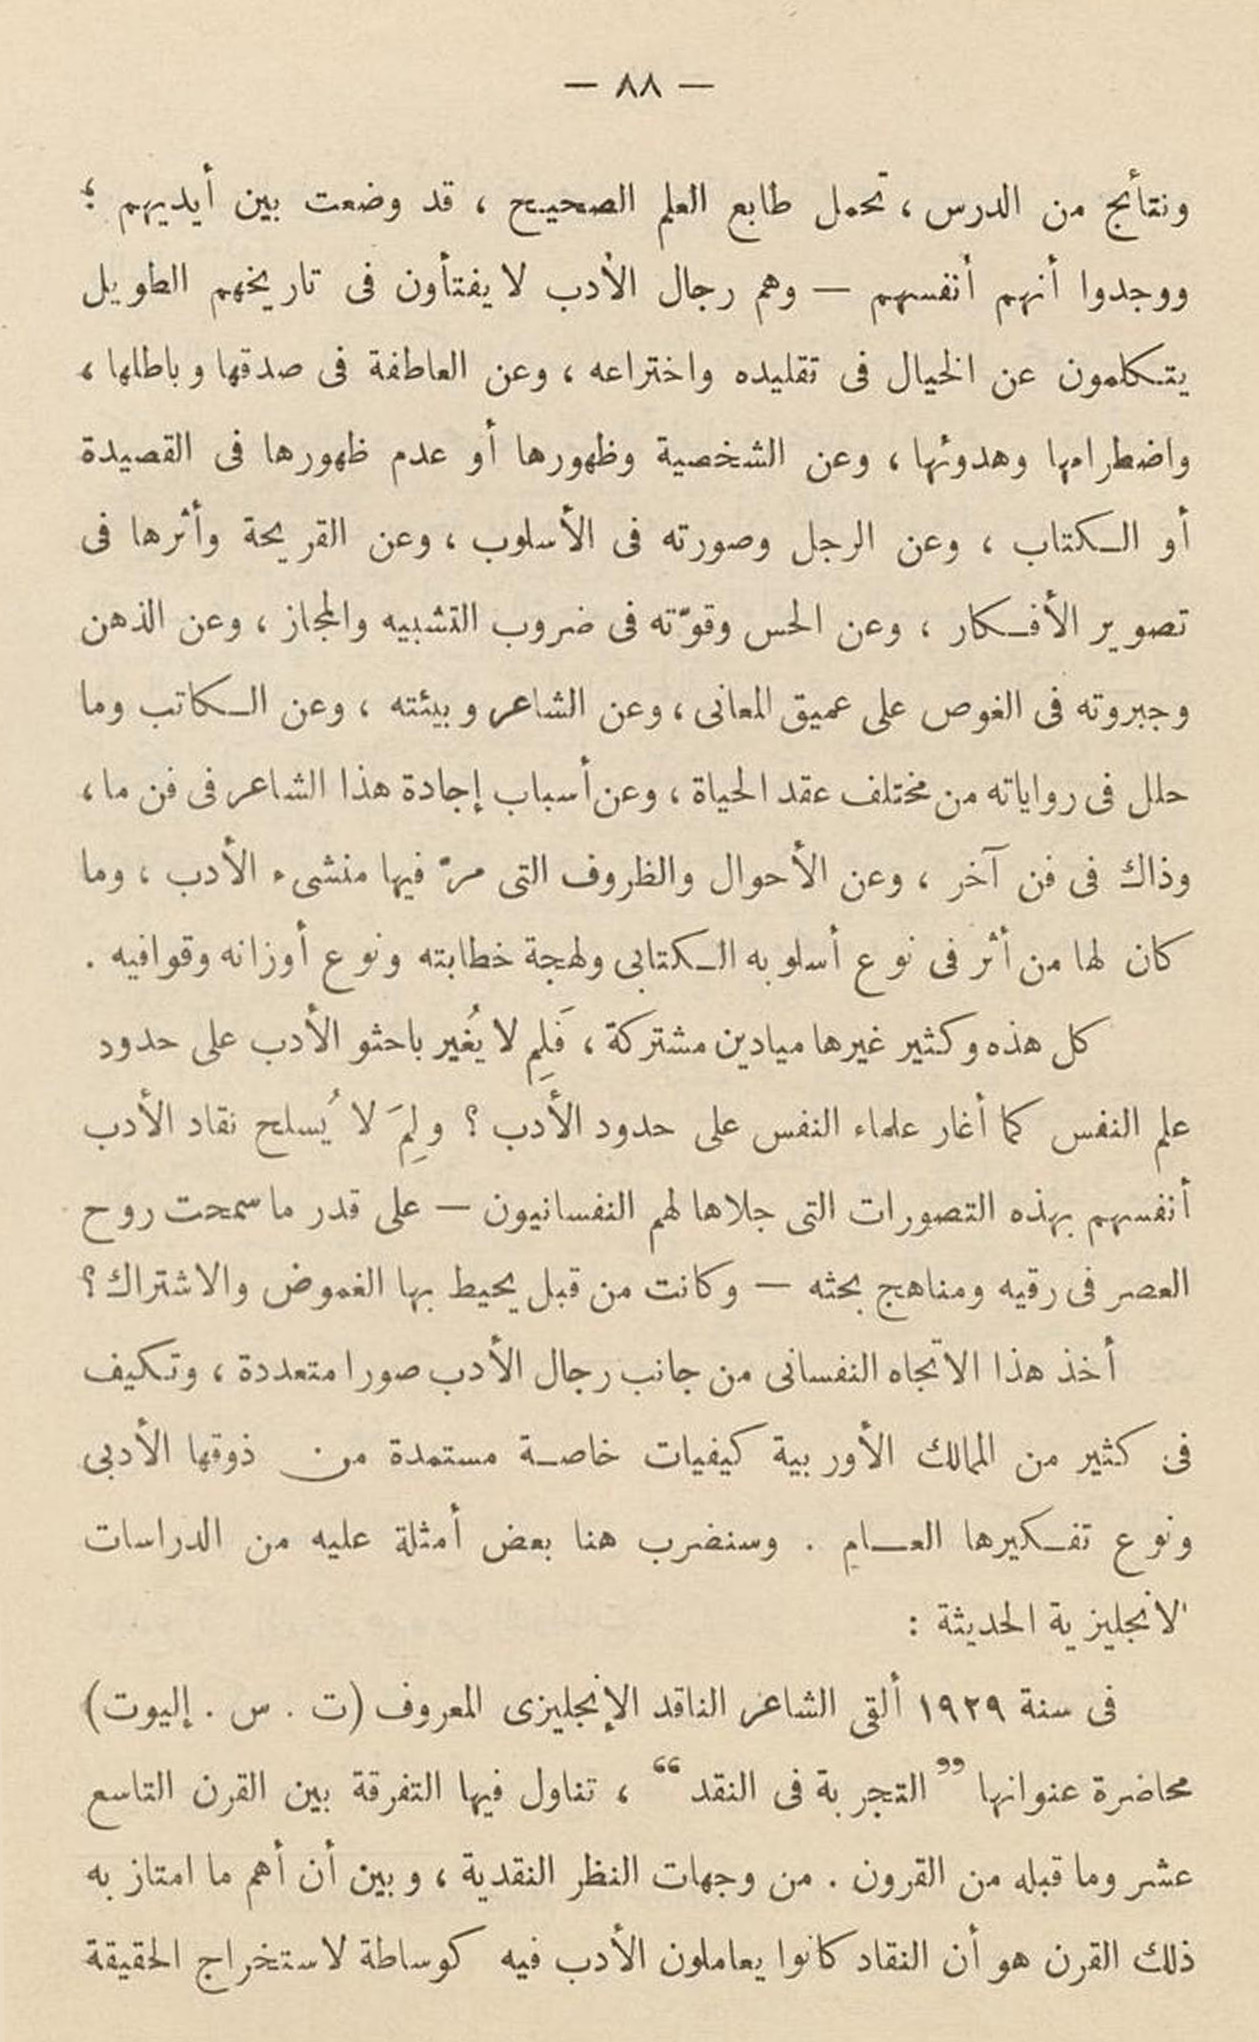 — ٨٨ —
ونتائج من الدرس ، تحمل طابع العلم الصحيح ، قد وضعت بين أيديهم ؛
ووجدوا أنهم أنفسهم — وهم رجال الأدب لا يفتأون فى تاريخهم الطويل
يتكلمون عن الخيال فى تقليده واختراعه ، وعن العاطفة فى صدقها وباطلها ،
واضطرامها وهدوئها ، وعن الشخصية وظهورها أو عدم ظهورها فى القصيدة
أو الكتاب ، وعن الرجل وصورته فى الأسلوب ، وعن القريحة وأثرها فى
تصوير الأفكار ، وعن الحس وقوّته فى ضروب التشبيه والمجاز ، وعن الذهن
وجبروته فى الغوص على عميق المعانى ، وعن الشاعر وبيئته ، وعن الكاتب وما
حلل فى رواياته من مختلف عقد الحياة ، وعن أسباب إجادة هذا الشاعر فى فن ما ،
وذاك فى فن آخر ، وعن الأحوال والظروف التى مرّ فيها منشىء الأدب ، وما
كان لها من أثر فى نوع أسلوبه الكتابى ولهجة خطابته ونوع أوزانه وقوافيه .
كل هذه وكثير غيرها ميادين مشتركة ، فَلِم لا يُغير باحثو الأدب على حدود
علم النفس كما أغار علماء النفس على حدود الأدب ؟ ولِمَ لا يُسلح نقاد الأدب
أنفسهم بهذه التصورات التى جلاها لهم النفسانيون — على قدر ما سمحت روح
العصر فى رقيه ومناهج بحثه — وكانت من قبل يحيط بها الغموض والاشتراك ؟
أخذ هذا الاتجاه النفسانى من جانب رجال الأدب صورا متعددة ، وتكيف
فى كثير من الممالك الأوربية كيفيات خاصة مستمدة من ذوقها الأدبى
ونوع تفكيرها العام . وسنضرب هنا بعض أمثلة عليه من الدراسات
الانجليزية الحديثة :
فى سنة ١٩٢٩ ألقى الشاعر الناقد الإنجليزى المعروف (ت . س . إليوت)
محاضرة عنوانها ”التجربة فى النقد“ ، تناول فيها التفرقة بين القرن التاسع
عشر وما قبله من القرون . من وجهات النظر النقدية ، وبين أن أهم ما امتاز به
ذلك القرن هو أن النقاد كانوا يعاملون الأدب فيه كوساطة لاستخراج الحقيقة